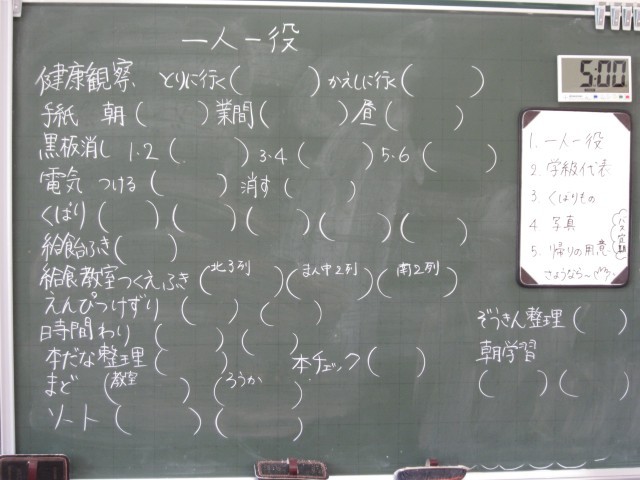 一人一役
健康観察 とりに行く( ) かえしに行く( )
手紙 朝( ) 業間( ) 昼( )
黒板消し 1・2( ) 3・4( ) 5・6( )
電気 つける( ) 消す( )
くばり( ) ( ) ( ) ( ) ( )
給食台ふき( )
給食教室つくえふき(北3列 ) (まん中2列 ) (南2列 )
えんぴつけずり( ) ( )
日時間わり( ) ( )
本だな整理( ) 本チェック( )
まど(教室 ) (ろうか )
ソート( ) ( )
ぞうきん整理( )
朝学習
( ) ( )
5:00
1. 一人一役
2. 学級代表
3. くばりもの
4. 写真
5. 帰りの用意
さようなら~